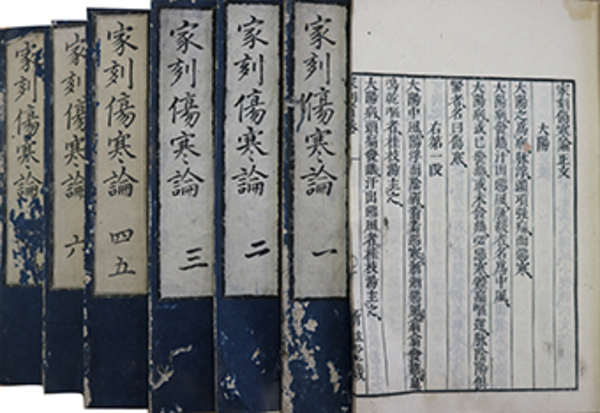 家刻傷寒論正文
大陽
大陽之為病脉浮頭項強痛而惡寒
大陽病發熱汗出惡風脉緩者名為中風
大陽病或已發熱或未發熱必惡寒體痛嘔逆脉陰陽俱
緊者名曰傷寒
右第一段
大陽中風陽浮而陰弱嗇嗇惡寒淅淅惡風翕翕發熱鼻
鳴乾嘔者桂枝湯主之
大陽病頭痛發熱汗出惡風者桂枝湯主之
家刻傷寒論 一
家刻傷寒論 二
家刻傷寒論 三
家刻傷寒論 四五
家刻傷寒論 六
家刻傷寒論